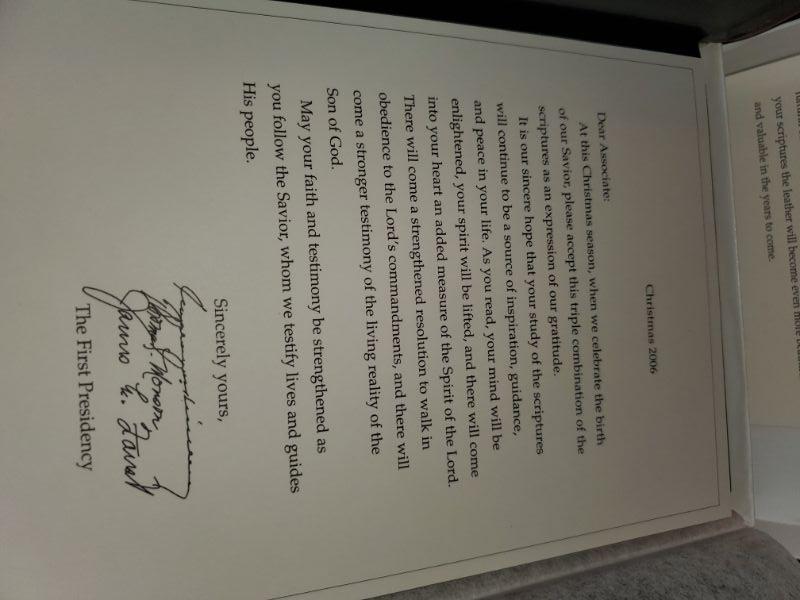 Christmas 2006
Dear Associate:
At this Christmas season, when we celebrate the birth
of our Savior, please accept this triple combination of the
scriptures as an expression of our gratitude.
It is our sincere hope that your study of the scriptures
will continue to be a source of inspiration, guidance,
and peace in your life. As you read, your mind will be
enlightened, your spirit will be lifted, and there will come
into your heart an added measure of the Spirit of the Lord.
There will come a strengthened resolution to walk in
obedience to the Lord's commandments, and there will
come a stronger testimony of the living reality of the
Son of God.
May your faith and testimony be strengthened as
you follow the Savior, whom we testify lives and guides
His people.
Sincerely yours,
James E. Faust
The First Presidency
your scriptures the leather will become even more
and valuable in the years to come.